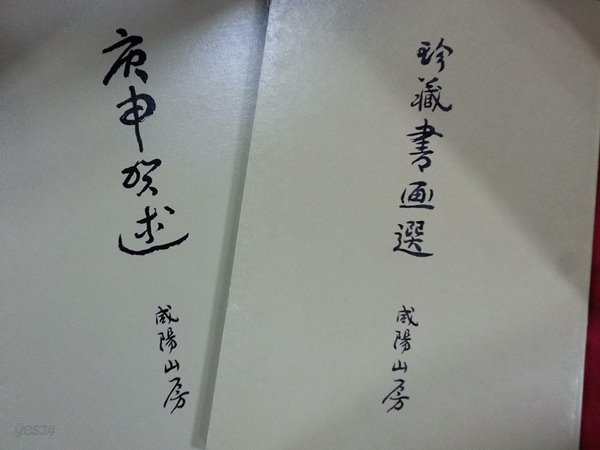 庚申述
咸陽山房
珍藏書画選
咸陽山房
yes24